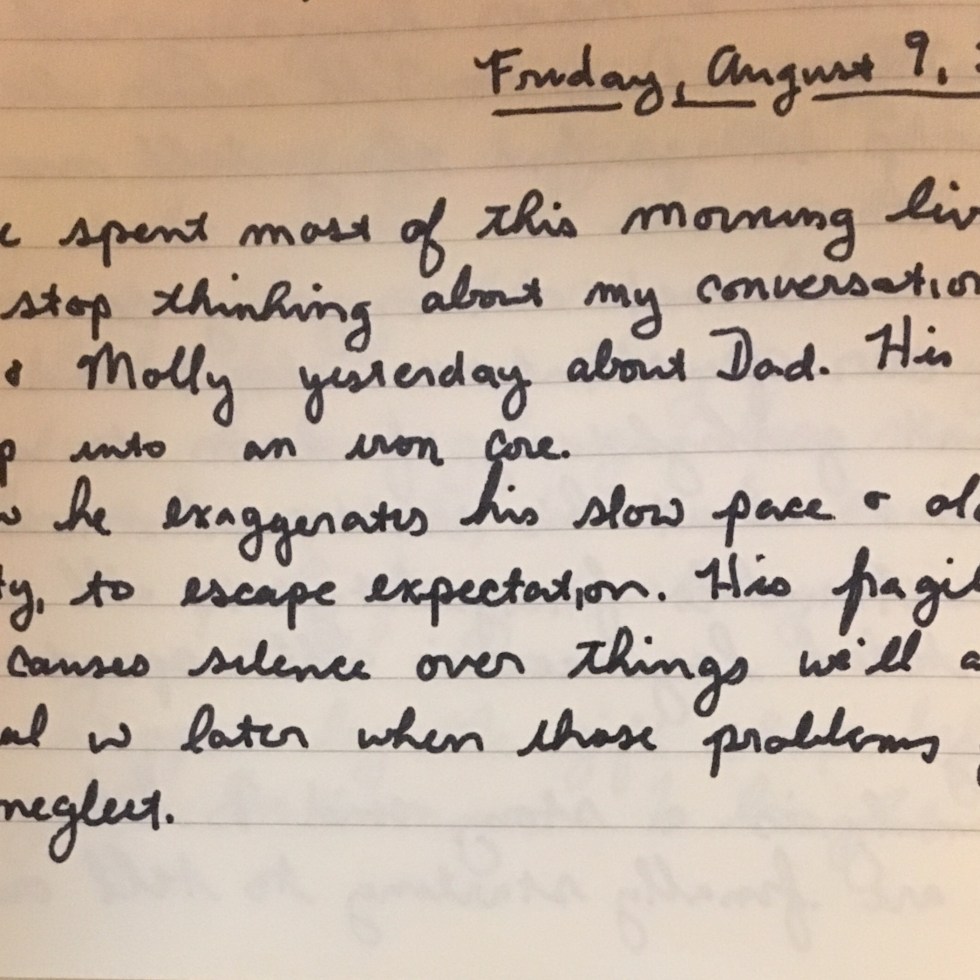 Friday, August 9,
spent most of this morning
stop thinking about my conversation
Molly yesterday about Dad. His
into an iron core.
he exaggerates his slow pace &
to escape expectation. His
causes silence over things we'll
w later when those problems
neglect.